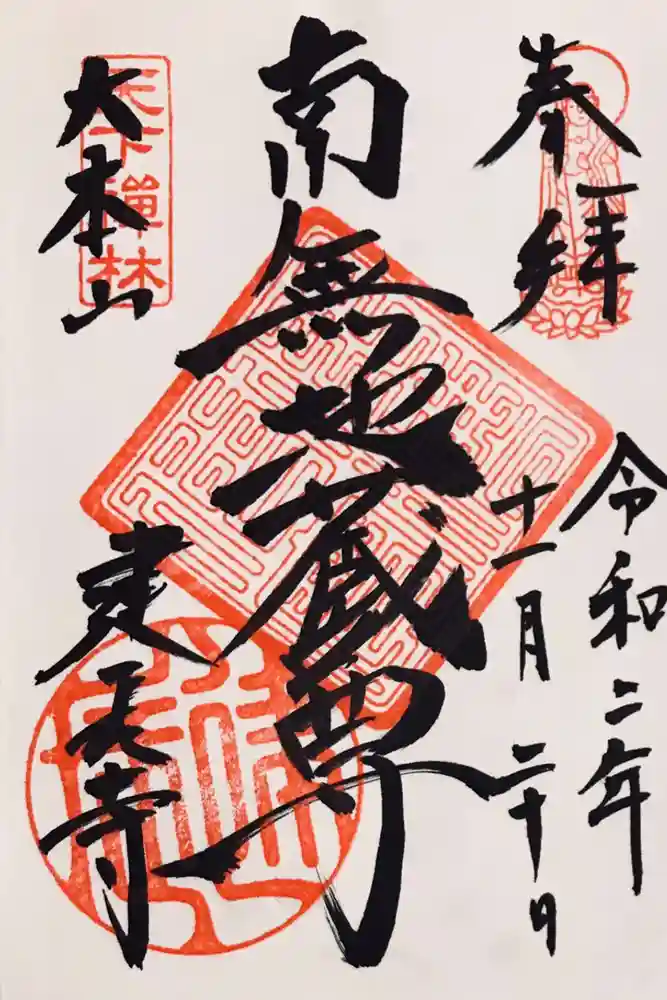 奉拝
令和二年
十一月二十日
南無地蔵尊
大本山
天下禅林
建長寺